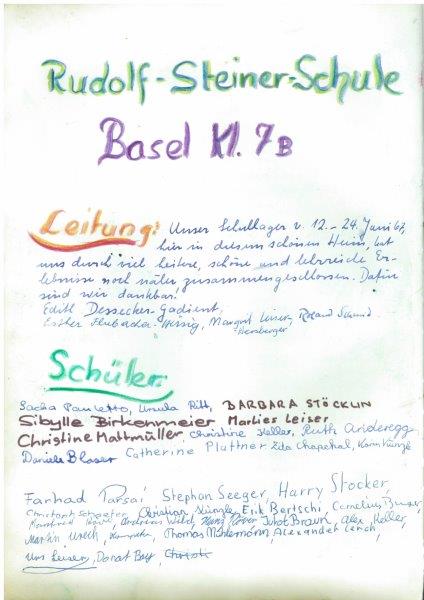 Rudolf-Steiner-Schule
Basel Kl. 7B
Leitung: Unser Schullager v. 12. – 24. Juni 67,
hier in diesem schönen Heim, hat
uns durch viel heitere, schöne und lehrreiche Er-
lebnisse noch näher zusammengeschlossen. Dafür
sind wir dankbar!
Edith Dessecker-Gadient,
Esther Margrit Roland
Hersberger
Schüler:
Sacha Pauletto, Ursula Ritt, BARBARA STÖCKLIN
Sibylle Birkenmeier Marlies Leiser
Christine Mattmüller Christine Keller, Ruth Anderegg
Daniela Blaser Catherine Pluttner Zita
Farhad Parsai Stephan Seeger, Harry Stocker,
Christoph Schaefer, Christian Erik Bertschi Cornelius
Andreas Braun, Alex Keller,
Martin Thomas Alexander
Urs Leiser, Donat